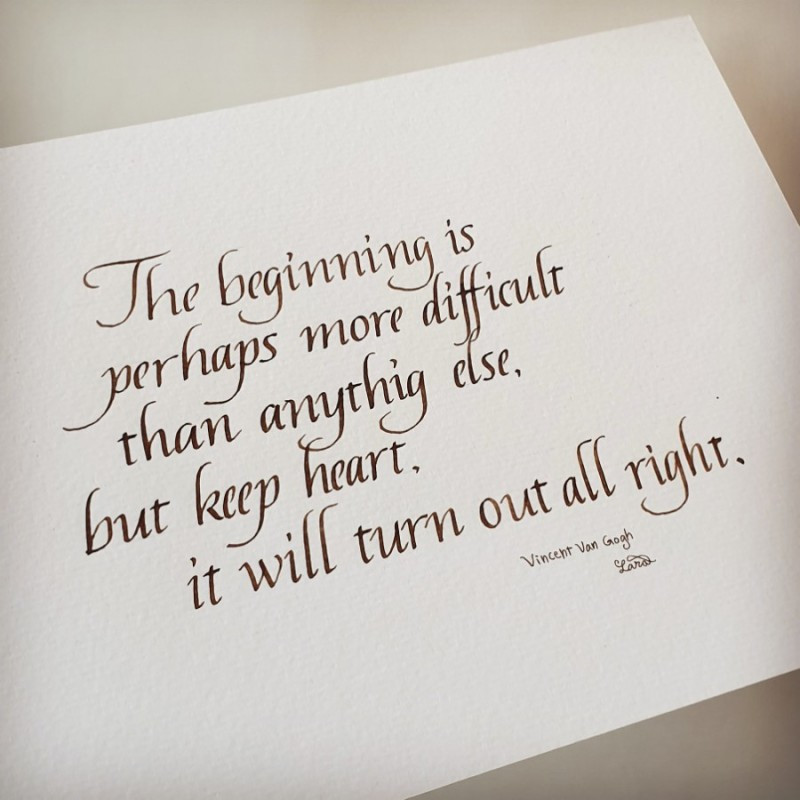 The beginning is
perhaps more difficult
than anythig else,
but keep heart,
it will turn out all right.
Vincent Van Gogh